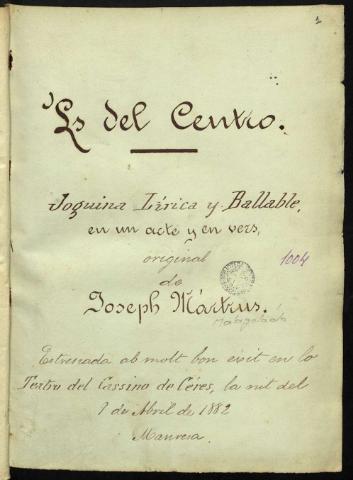 1
'Ls del Centro.
Joguina Lírica y Ballable,
en un acte y en vers,
original
1004
de
Joseph Mártrus.
Estrenada ab molt bon éxit en lo
Teatro del Cassino de Céres, la nit del
1 de Abril de 1882
Manresa.